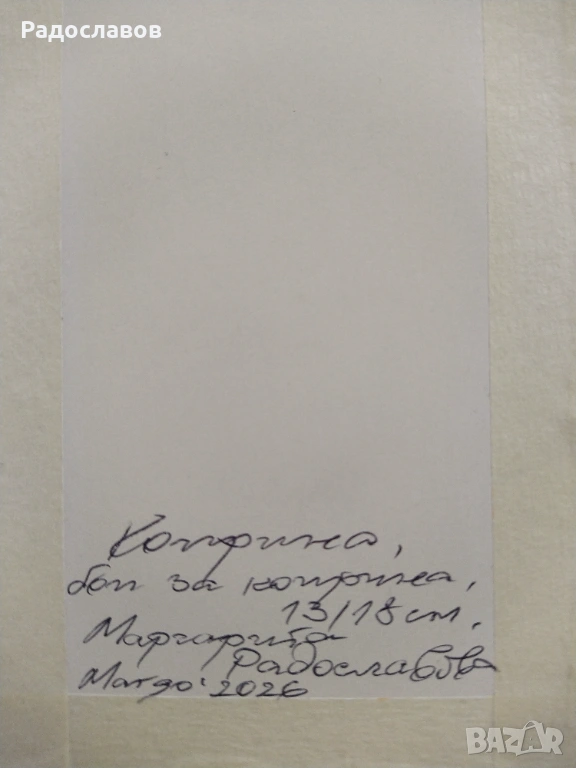 Радославов
Коприна,
бои за коприна,
13/18 см.
Маргарита
Радославова
Margo' 2026
BAZAR